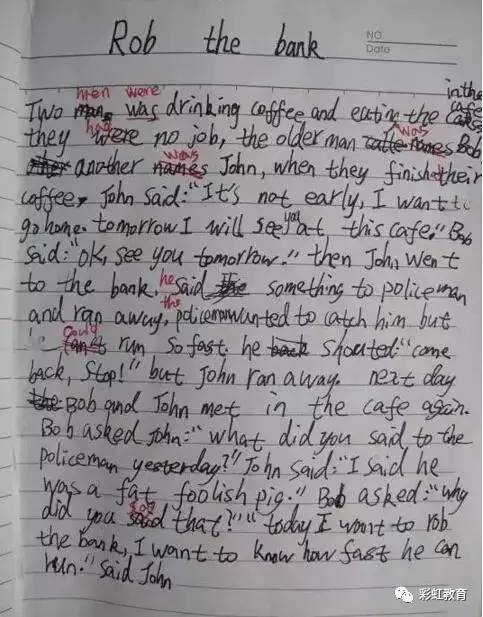 Rob the bank
NO
Date
men were in the
Two was drinking coffee and eating the cake
had was
they were no job, the older man names Bob,
was
another names John, when they finish their
coffee, John said: "It's not early, I want to
you
go home. tomorrow I will see at this cafe." Bob
said: "ok, see you tomorrow." then John went
he
to the bank, said something to policeman
the
and ran away, policeman wanted to catch him but
could
he can't run so fast. he shouted: "come
back, stop!" but John ran away. next day
Bob and John met in the cafe again.
Bob asked John: "what did you said to the
policeman yesterday?" John said: "I said he
was a fat foolish pig." Bob asked: "why
say
did you said that?" "today I want to rob
the bank, I want to know how fast he can
run." said John
彩虹教育